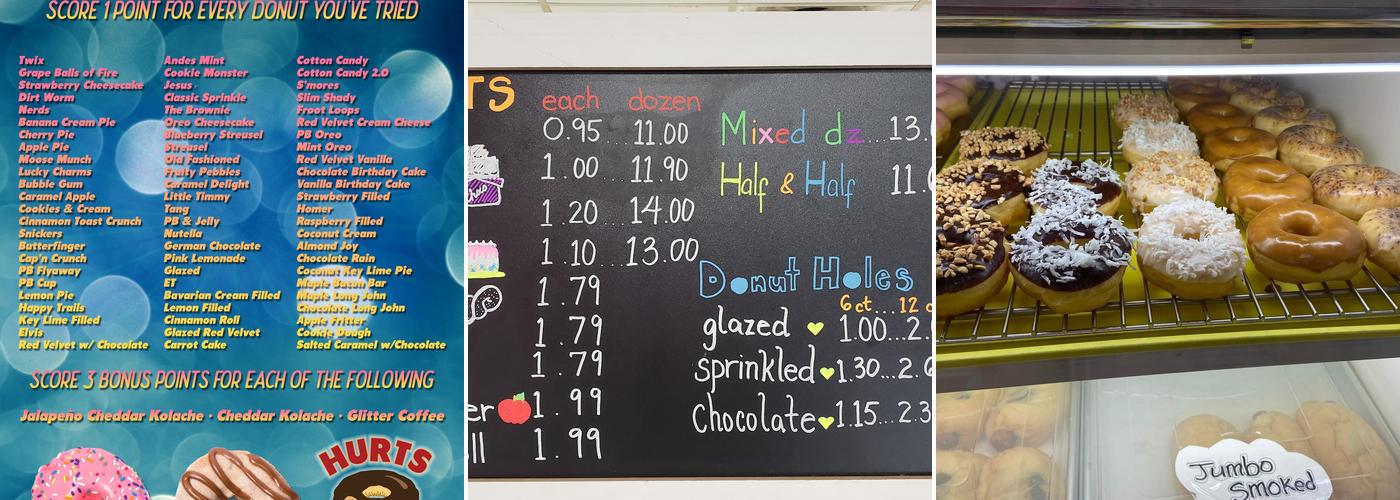 SCORE 1 POINT FOR EVERY DONUT YOU'VE TRIED
Twix
Grape Balls of Fire
Strawberry Cheesecake
Dirt Worm
Nerds
Banana Cream Pie
Cherry Pie
Apple Pie
Moose Munch
Lucky Charms
Bubble Gum
Caramel Apple
Cookies & Cream
Cinnamon Toast Crunch
Snickers
Butterfinger
Cap'n Crunch
PB Flyaway
PB Cup
Lemon Pie
Happy Trails
Key Lime Filled
Elvis
Red Velvet w/ Chocolate
Andes Mint
Cookie Monster
Jesus
Classic Sprinkle
The Brownie
Oreo Cheesecake
Blueberry Streusel
Streusel
Old Fashioned
Fruity Pebbles
Caramel Delight
Little Timmy
Tang
PB & Jelly
Nutella
German Chocolate
Pink Lemonade
Glazed
ET
Bavarian Cream Filled
Lemon Filled
Cinnamon Roll
Glazed Red Velvet
Carrot Cake
Cotton Candy
Cotton Candy 2.0
S'mores
Slim Shady
Froot Loops
Red Velvet Cream Cheese
PB Oreo
Mint Oreo
Red Velvet Vanilla
Chocolate Birthday Cake
Vanilla Birthday Cake
Strawberry Filled
Homer
Raspberry Filled
Coconut Cream
Almond Joy
Chocolate Rain
Coconut Key Lime Pie
Maple Bacon Bar
Maple Long John
Chocolate Long John
Apple Fritter
Cookie Dough
Salted Caramel w/Chocolate
SCORE 3 BONUS POINTS FOR EACH OF THE FOLLOWING
Jalapeño Cheddar Kolache · Cheddar Kolache · Glitter Coffee
HURTS
TS each dozen
0.95 11.00
1.00...11.90
1.20...14.00
1.10...13.00
1.79
1.79
1.79
er 1.99
ll 1.99
Mixed dz...13.
Half & Half 11.
Donut Holes
6ct...12 c
glazed 1.00...2.
sprinkled 1.30...2.6
Chocolate 1.15...2.3
Jumbo
Smoked